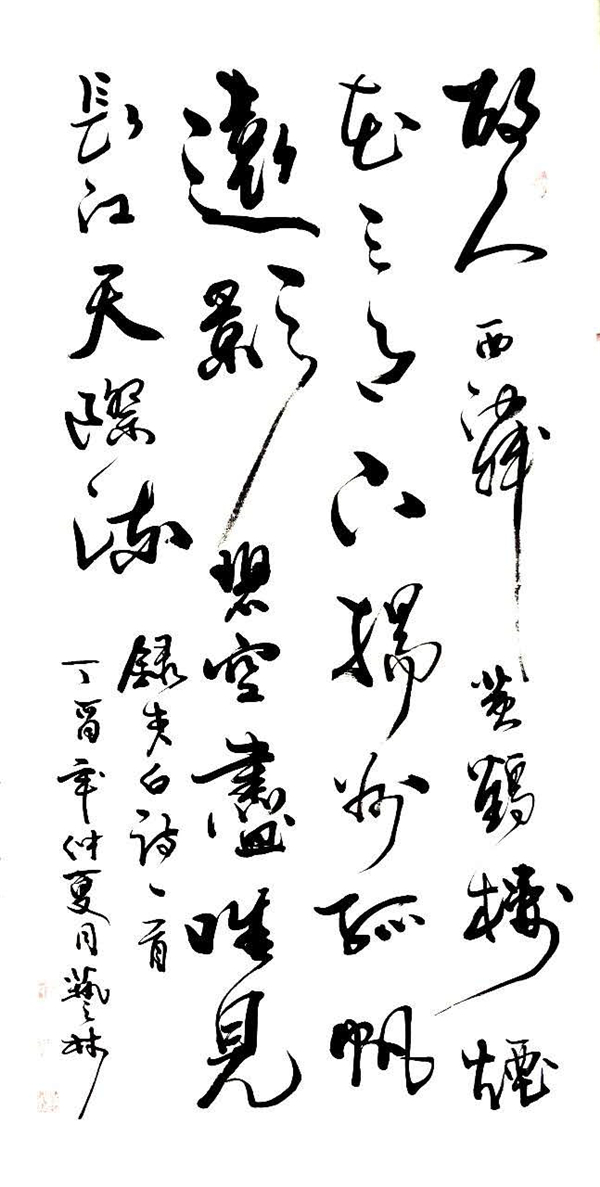 故人西辞黄鶴樓煙
花三月下揚州孤帆
遠影碧空盡唯見
長江天際流
録李白詩一首
丁酉年仲夏月藝林